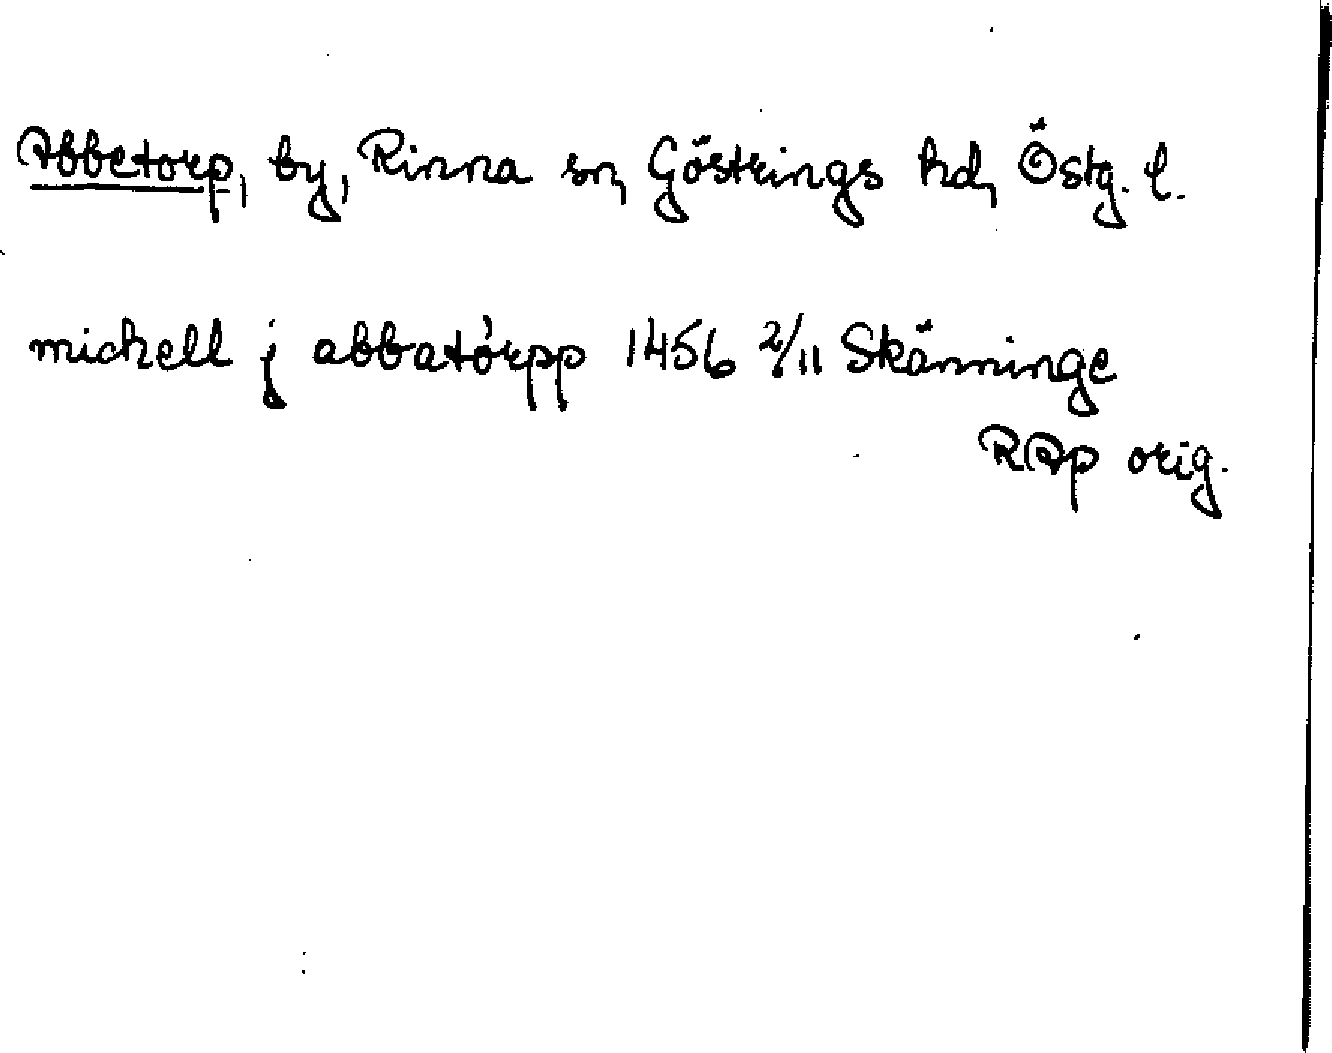 Abbetorp, by, Rinna sn, Göstrings hd, Östg. l.
michell j abbatórpp 1456 2/11 Skänninge
RAp orig.